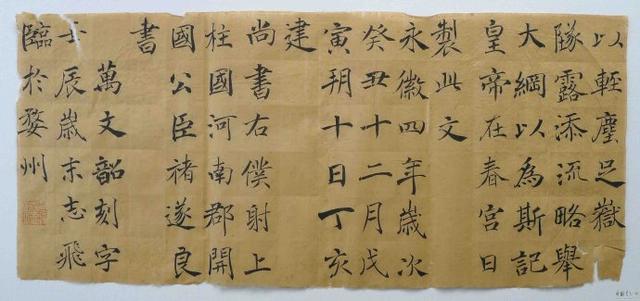 以輕塵足嶽
隊露添流略舉
大綱以為斯記
皇帝在春宮日
製此文
永徽四年歲次
癸丑十二月戊
寅朔十日丁亥
建
尚書右僕射上
柱國河南郡開
國公臣褚遂良
書
萬文韶刻字
壬辰歲末志飛
臨於婺州